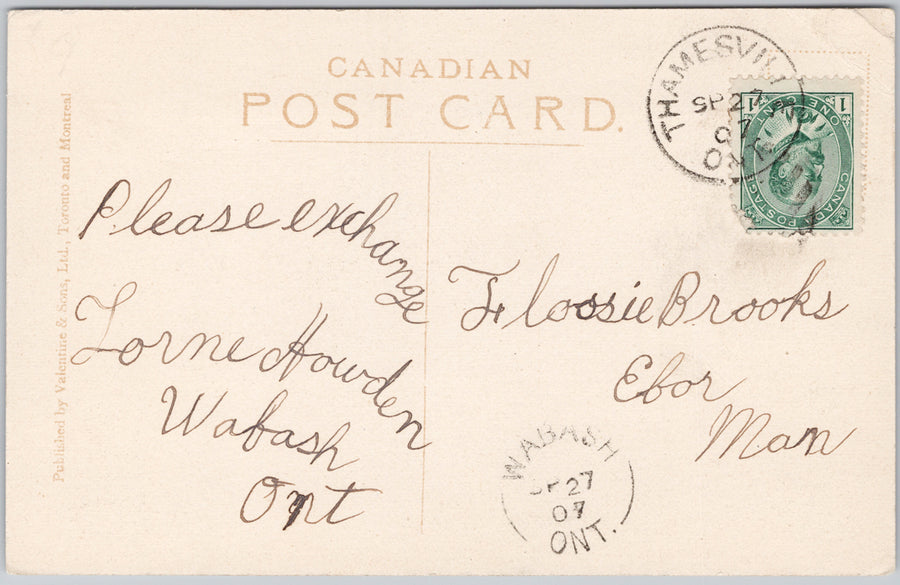 CANADIAN
POST CARD.
Published by Valentine & Sons, Ltd., Toronto and Montreal
Please exchange
Lorne Howden
Wabash
Ont
THAMESVILL
SP 27
07
ONE CENT
1 1
CANADA POSTAGE
Flossie Brooks
Ebor
Man
WABASH
SP 27
07
ONT.